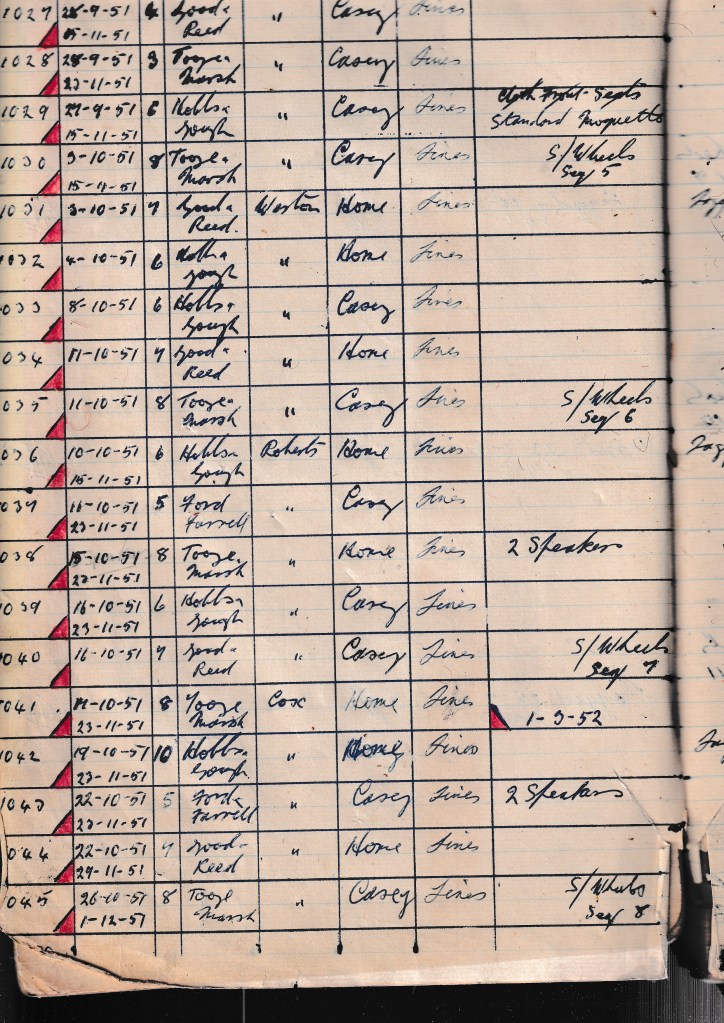 1027 28-9-51 4 Good & " Casey Lines
15-11-51 Reed
1028 28-9-51 3 Tooze & " Casey Lines
23-11-51 Marsh
1029 27-9-51 6 Hobbs & " Casey Lines Cloth Front-Seats
15-11-51 Gough Standard Moquette
1030 3-10-51 8 Tooze & " Casey Lines S/Wheels
15-11-51 Marsh Seq 5
1031 3-10-51 7 Good & Weston Home Lines
Reed.
032 4-10-51 6 Hobbs & " Home Lines
Gough
033 8-10-51 6 Hobbs & " Casey Lines
Gough
034 11-10-51 7 Good & " Home Lines
Reed
035 11-10-51 8 Tooze & " Casey Lines S/Wheels
Marsh Seq 6
036 10-10-51 6 Hobbs & Roberts Home Lines
15-11-51 Gough
037 16-10-51 5 Ford " Casey Lines
23-11-51 Farrell
038 15-10-51 8 Tooze. " Home Lines 2 Speakers
23-11-51 Marsh
1039 16-10-51 6 Hobbs & " Casey Lines
23-11-51 Gough
1040 16-10-51 7 Good & " Casey Lines S/Wheels
Reed Seq 7
1041. 17-10-51 8 Tooze Cox Home Lines
23-11-51 Marsh 1-3-52
1042 19-10-51 10 Hobbs & " Lines
23-11-51 Gough.
1043 22-10-51 5 Ford & " Casey Lines 2 Speakers
23-11-51 Farrell
044 22-10-51 7 Good & " Home Lines
29-11-51 Reed
045 26-10-51 8 Tooze " Casey Lines S/Wheels
1-12-51 Marsh Seq 8